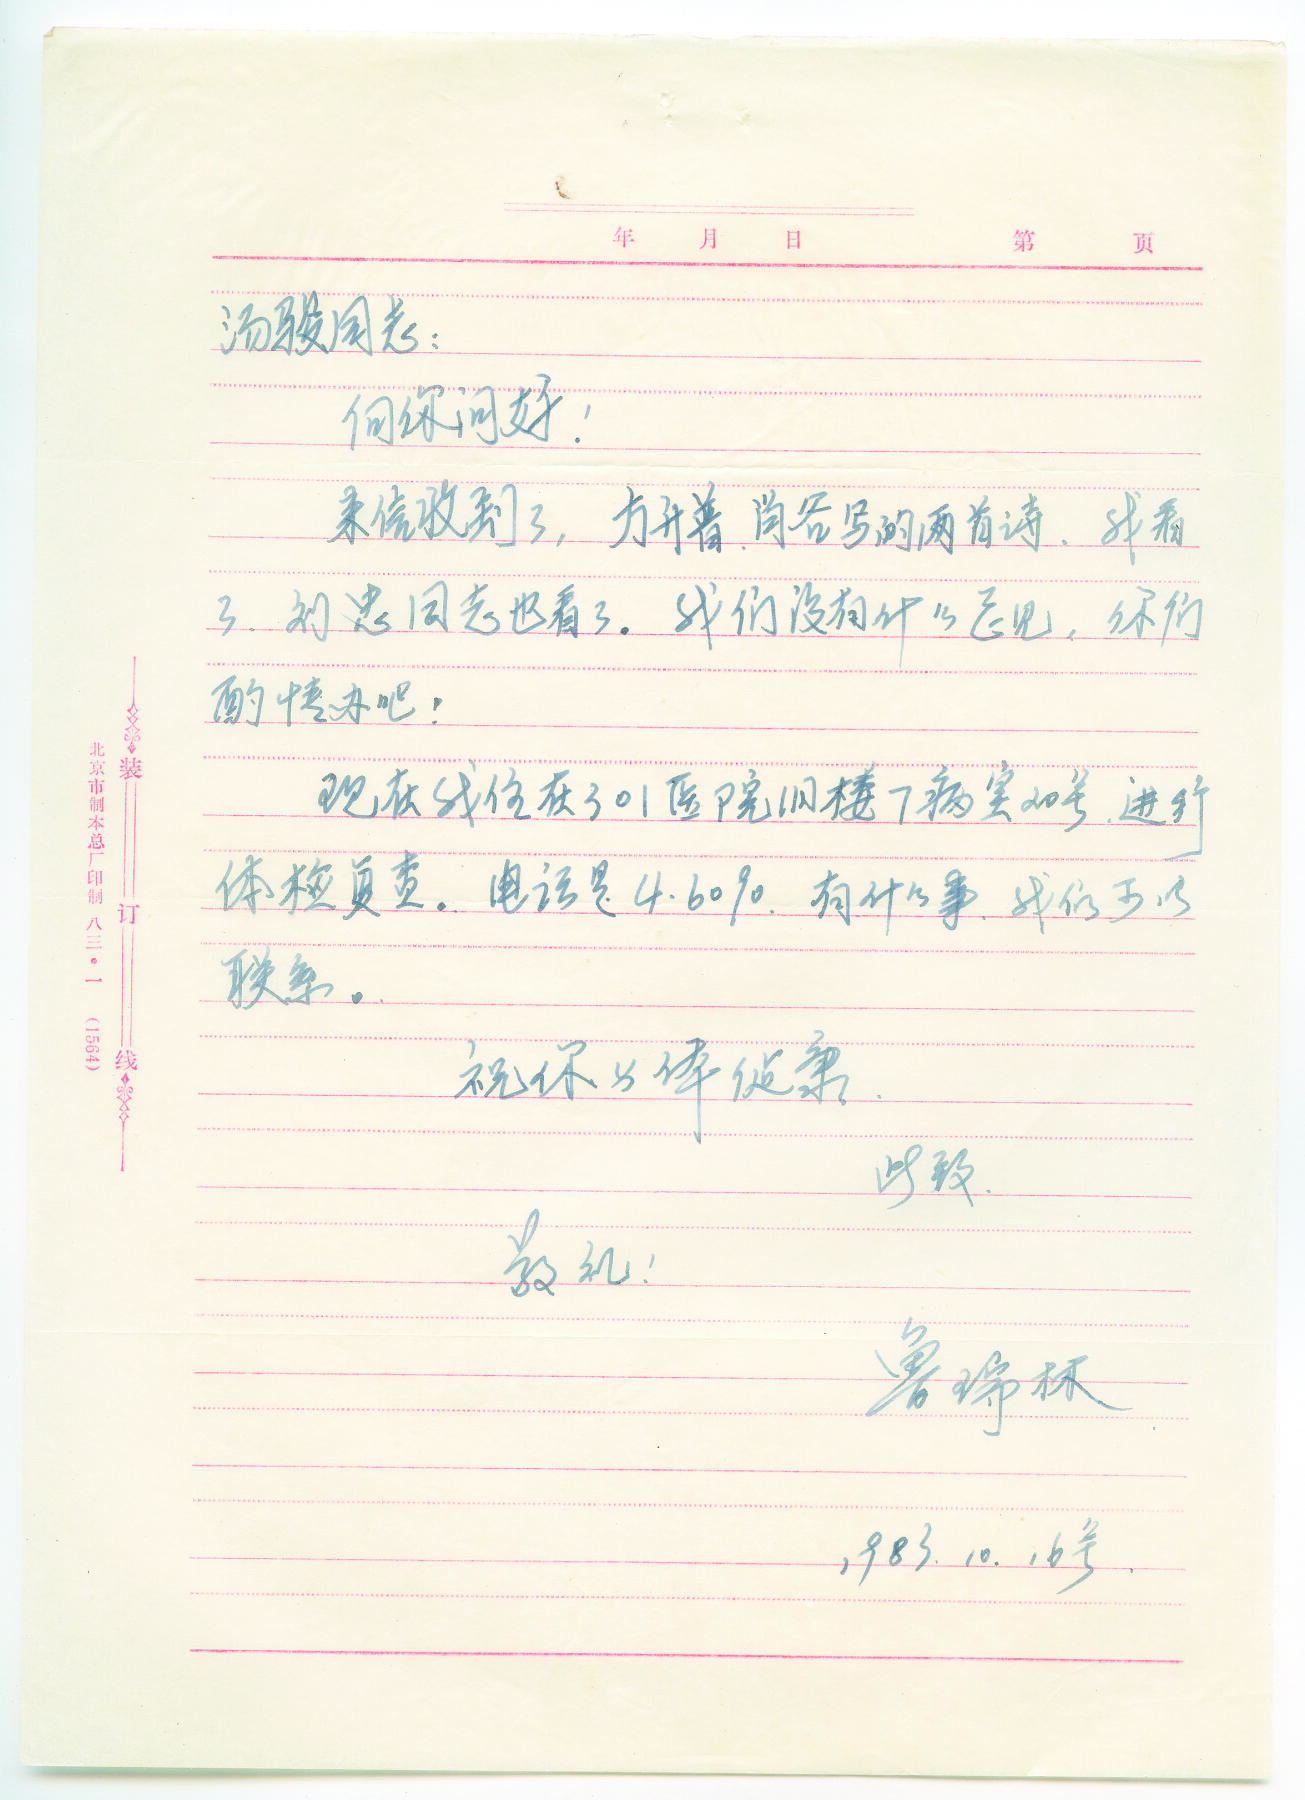 年 月 日 第 页
汤骏同志：
向你问好！
来信收到了，方升普、尚谷写的两首诗、我看
了、刘忠同志也看了。我们没有什么意见，你们
酌情办吧！
现在我住在301医院旧楼7病室20号、进行
体检复查。电话是4.6090、有什么事、我们可以
联系。
祝你身体健康、
此致、
敬礼！
鲁瑞林
1983.10.16号.
装订线
北京市制本总厂印制 八三·一 (1564)